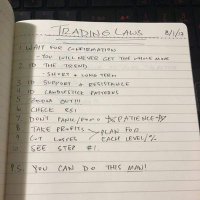 TRADING LAWS 8/1/17
1 WAIT FOR CONFIRMATION
- YOU WILL NEVER GET THE WHOLE MOVE
2 ID THE TREND
- SHORT + LONG TERM
3 ID SUPPORT + RESISTANCE
4 ID CANDLESTICK PATTERNS
5 ZOOM OUT!!!
6 CHECK RSI
7 DON'T PANIC/FOMO PATIENCE
8 TAKE PROFITS PLAN FOR
9 CUT LOSSES EACH LEVEL/%
10 SEE STEP #1
YOU CAN DO THIS MAN!